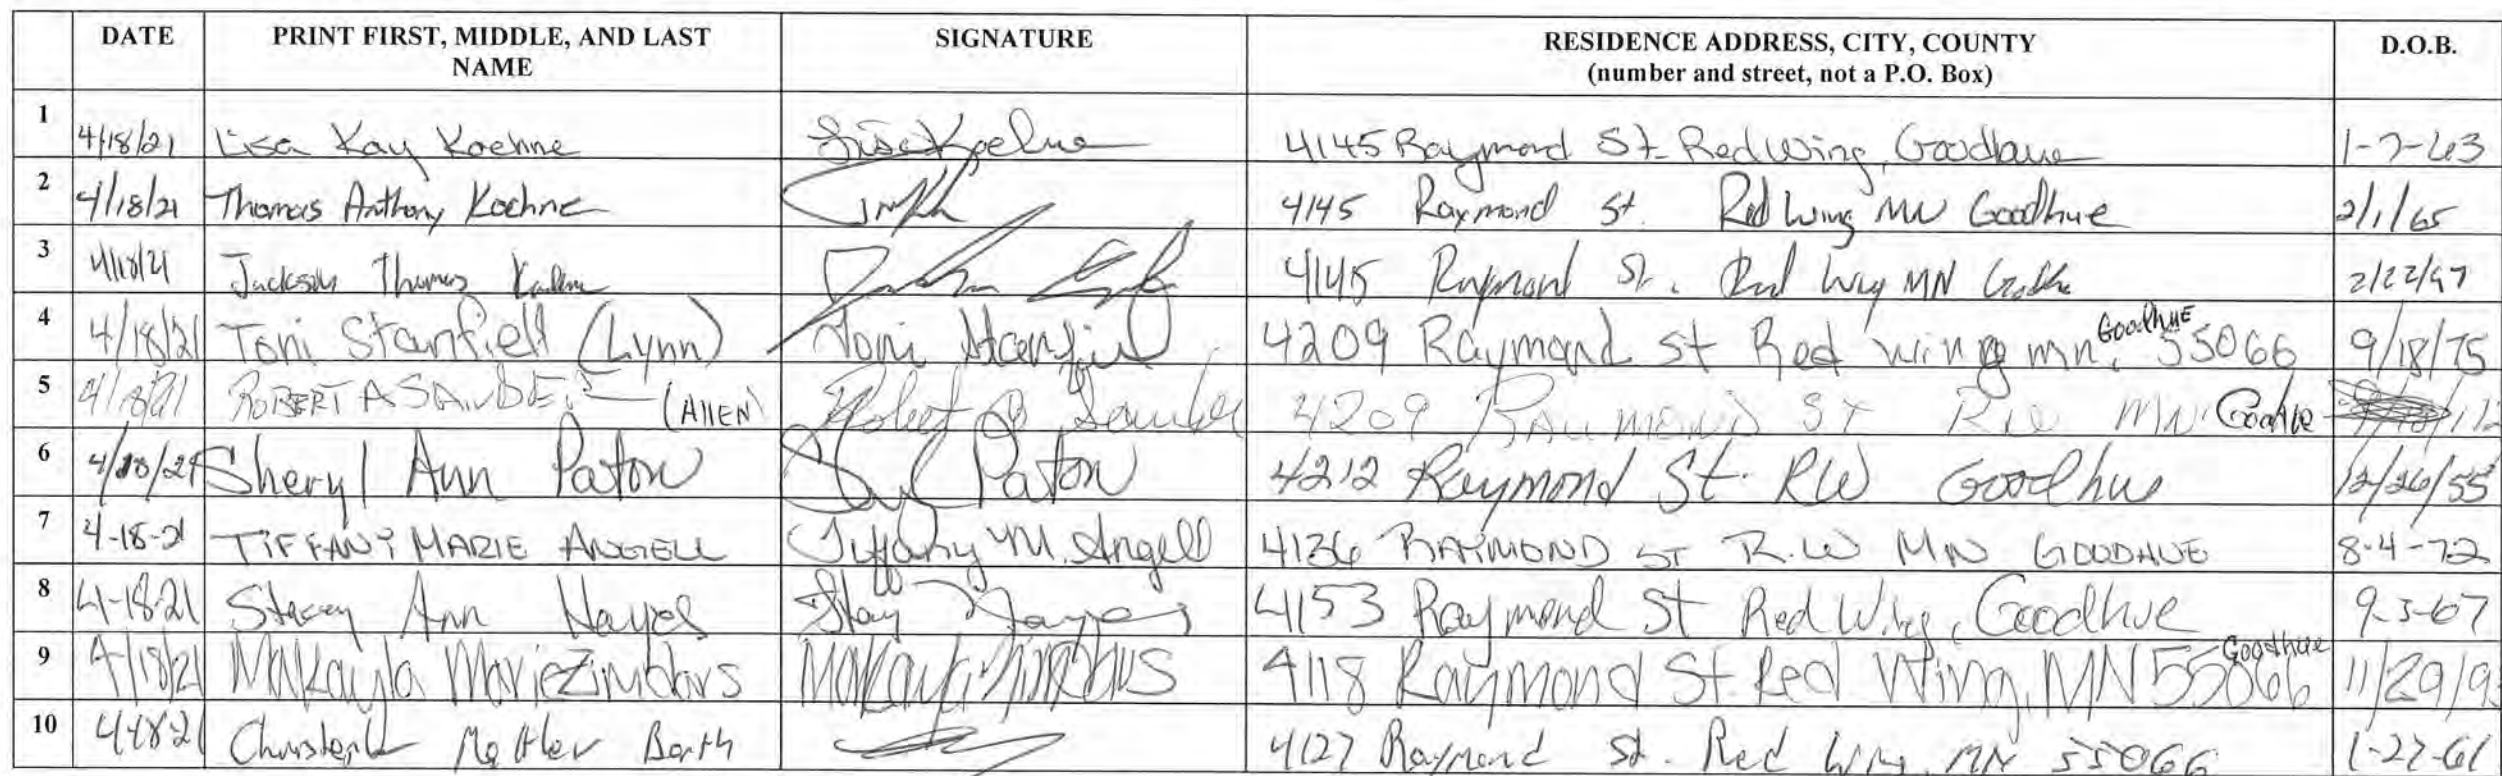 DATE PRINT FIRST, MIDDLE, AND LAST NAME SIGNATURE RESIDENCE ADDRESS, CITY, COUNTY (number and street, not a P.O. Box) D.O.B.
1 4/18/21 Lisa Kay Koehne Lisa Koehne 4145 Raymond St. Red Wing, Goodhue 1-7-63
2 4/18/21 Thomas Anthony Koehne 4145 Raymond St. Red Wing MN Goodhue 2/1/65
3 4/18/21 Jackson Thomas Koehne 4145 Raymond St. Red Wing MN 2/22/97
4 4/18/21 Toni Stanfiell (Lynn) Toni 4209 Raymond St Red wing mn, Goodhue 55066 9/18/75
5 4/18/21 ROBERT A (AllEN) Robert A 4209 St MN Goodhue
6 4/18/21 Sheryl Ann Paton Paton 4212 Raymond St. RW Goodhue 12/26/55
7 4-18-21 TIFFANY MARIE ANGELL Tiffany M. Angell 4136 RAYMOND ST R.W MN GOODHUE 8-4-72
8 4-18-21 Stacey Ann Hayes Hayes 4153 Raymond St Red Wing, Goodhue 9-3-67
9 4/18/21 Makayla Marie Zimbars 4118 Raymond St Red Wing, MN 55066 Goodhue 11/29/9
10 4-18-21 Barth 4127 Raymond St. Red Wing, MN 55066 1-27-61